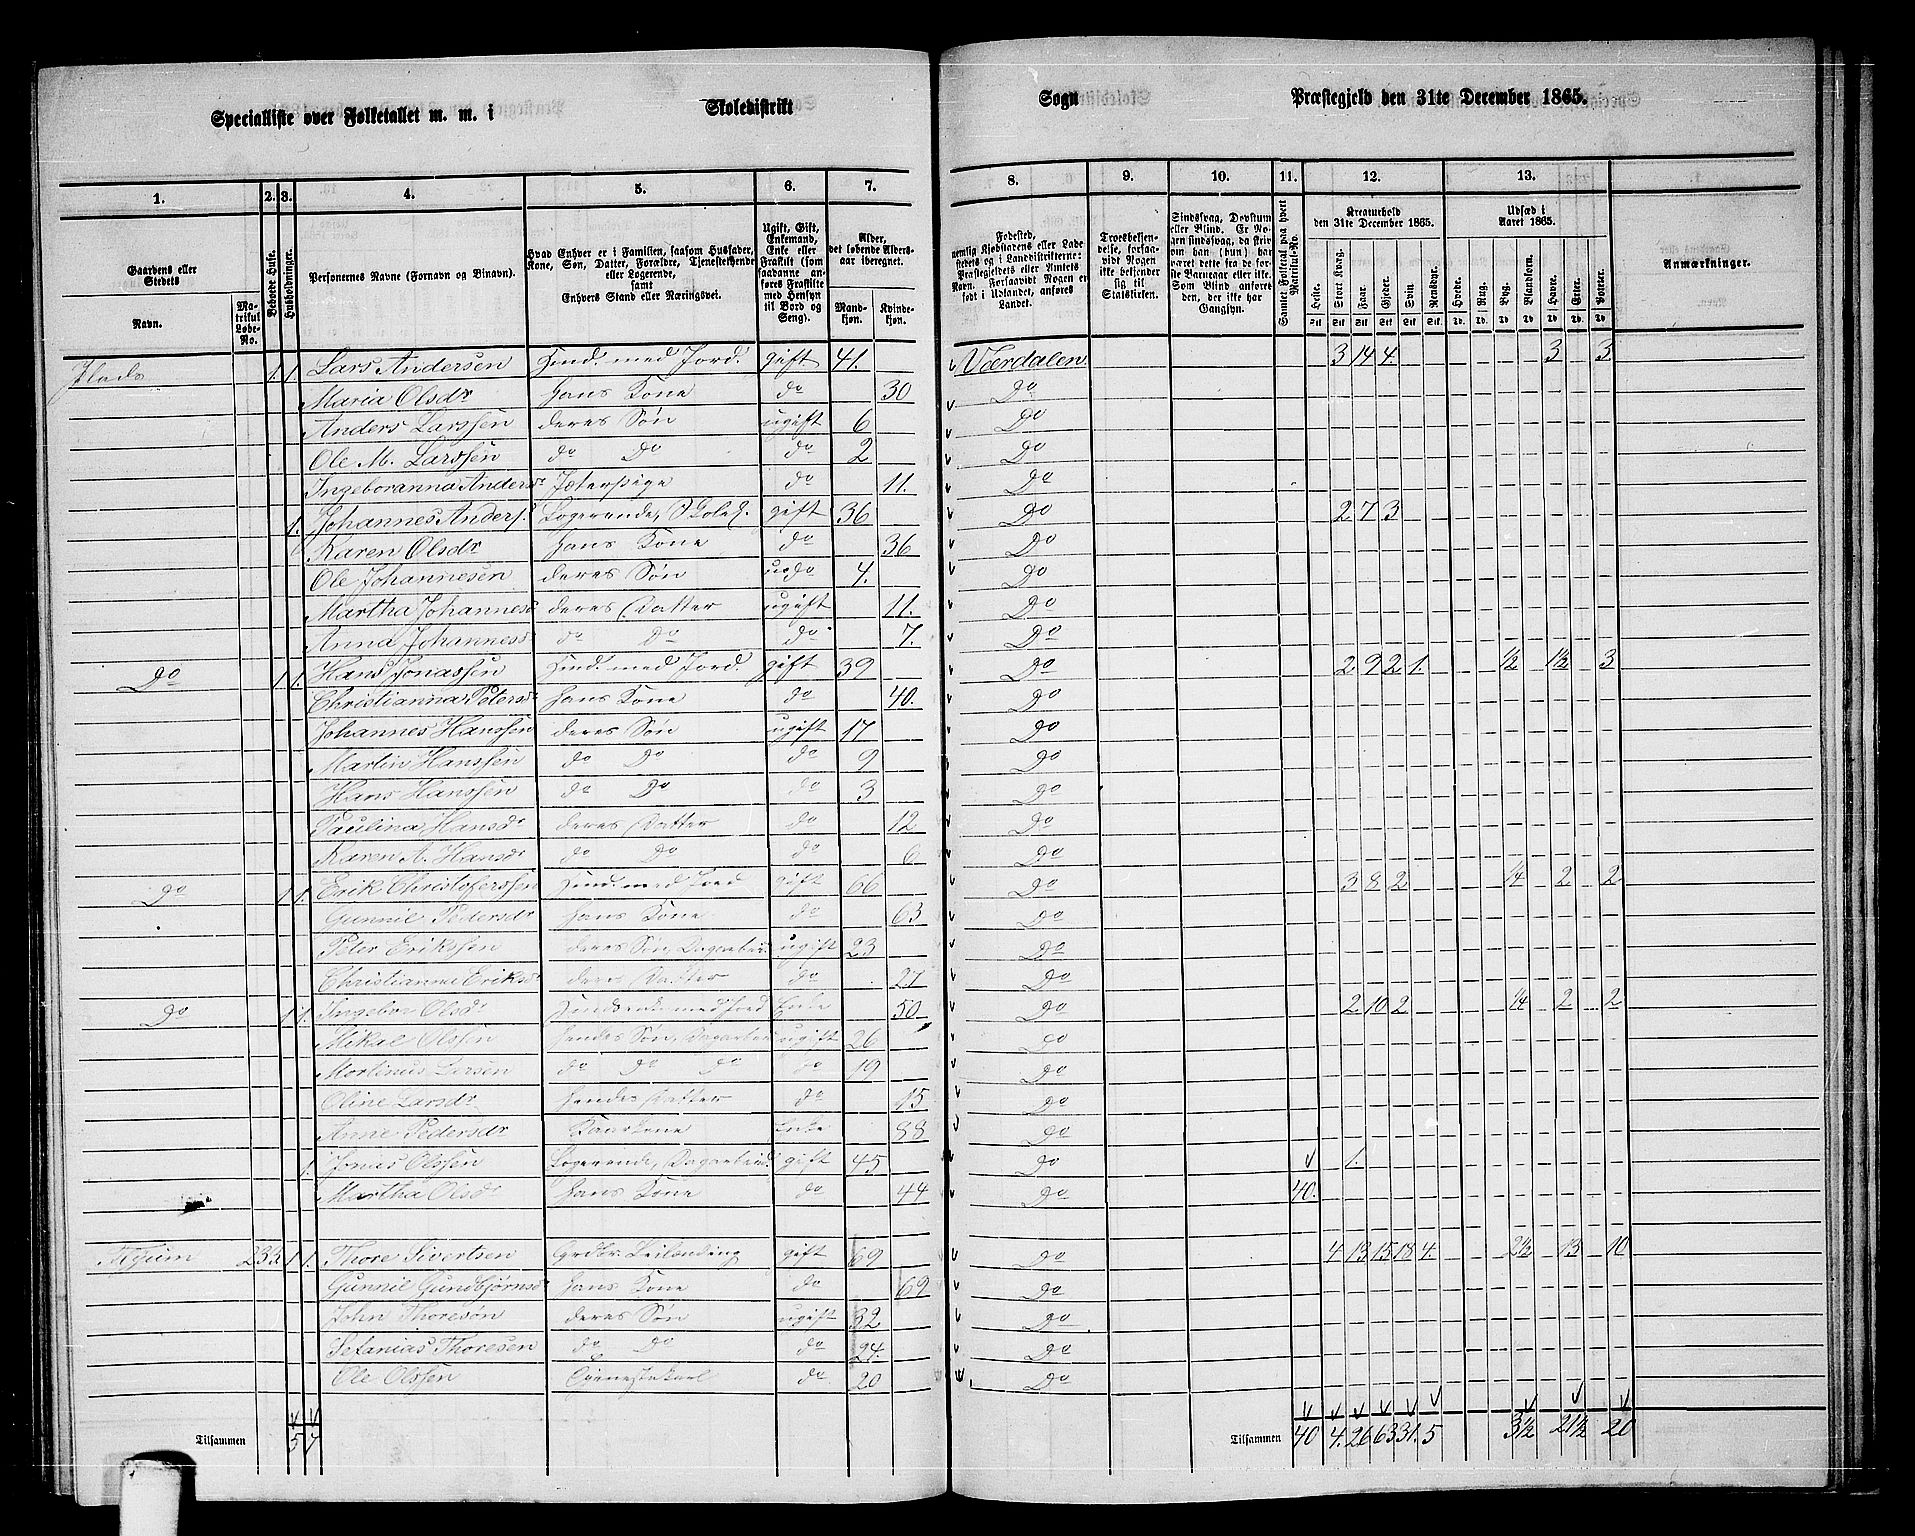 Specialliste over Folketallet m. m. i Skoledistrikt Sogn Præstegjeld den 31te December 1865.
1. 2. 3. 4. 5. 6. 7. 8. 9. 10. 11. 12. 13.
Gaardens eller Stedets Navn. Matrikul Løbe-No. Beboede Huse. Husholdninger. Personernes Navne (Fornavn og Tilnavn). Hvad Enhver er i Familien, saasom Husfader, Kone, Søn, Datter, Forældre, Tjenestetyende eller Logerende, samt Enhvers Stand eller Næringsvei. Ugift, Gift, Enkemand, Enke eller Fraskilt (som saadanne anføres Fraskilte med Hensyn til Bord og Seng). Alder, det løbende Alders-aar iberegnet. Mandkjøn. Kvindekjøn.
Fødested, nemlig Kjøbstadens eller Ladestedets og i Landdistrikterne: Præstegjeldets eller Amtets Navn. Forsaavidt Nogen er født i Udlandet, anføres Landet. Troesbekjendelse, forsaavidt Nogen ikke bekjender sig til Statskirken. Sindssvag, Døvstum eller Blind. Kreaturhold den 31te December 1865. Udsæd i Aaret 1865. Anmærkninger.
Heste. Stort Kvæg. Faar. Gjeder. Svin. Rensdyr. Hvede. Rug. Byg. Blandkorn. Havre. Erter. Poteter.
1. 1. Lars Andersen Husm. med Jord. gift 41. Værdalen 3 14 4. 3 3
Maria Olsdr hans Kone do 30 Do
Anders Larssen deres Søn ugift 6 Do
Ole M. Larssen do Do do 2 Do
Ingeboranna Andersd do 11. Do
1. Johannes Anders. Logerende, gift 36 Do 2 7 3
Karen Olsdr hans Kone do 36 Do
Ole Johannesen deres Søn 4. Do
Martha Johannesd deres Datter ugift 11. Do
Anna Johannesd do Do do 7. Do
Do 1 1. Hans Jonassen Husm. med Jord. gift 39 Do 2 9 2 1. 1/2 1 1/2 3
Christianna Petersd hans Kone do 40. Do
Johannes Hanssen deres Søn ugift 17 Do
Martin Hanssen do Do do 9 Do
Hans Hanssen do Do do 3 Do
Paulina Hansdr deres Datter do 12 Do
Karen A. Hansdr do Do do 6 Do
Do 1 1. Erik Christofersen Husm. med Jord gift 66 Do 3 8 2 1/4 2 2
Gunnil Pedersdr hans Kone do 63 Do
Peter Erikssen deres Søn, Dagarbeid. ugift 23 Do
Christianne Eriksdr deres Datter do 27 Do
Do 1 1. Ingebor Olsdr med Jord Enke 50 Do 2 10 2 1/4 2 2
Mikal Olssen hendes Søn, Dagarbeid ugift 26 Do
Martinus Larsen do Do Do do 19 Do
Oline Larsdr hendes Datter do 15 Do
Anne Pedersdr Kaarkone Enke 88 Do
1. Jonas Olssen Logerende, Dagarbeid. gift 45 Do 1.
Martha Olsdr hans Kone do 44 Do 40.
233. 1 1. Thore Sivertsen Grdbr. Leilending gift 69 Do 4 13 15 18 4. 2 1/2 13 10
Gunnil Gundbjørnsd hans Kone do 69 Do
John Thoresøn deres Søn ugift 32 Do
Setanias Thoresen do Do do 24 Do
Ole Olssen Tjenestekarl do 20 Do
Tilsammen 5 7 Tilsammen 40 4. 26 63 31. 5 3 1/2 21 1/2 20